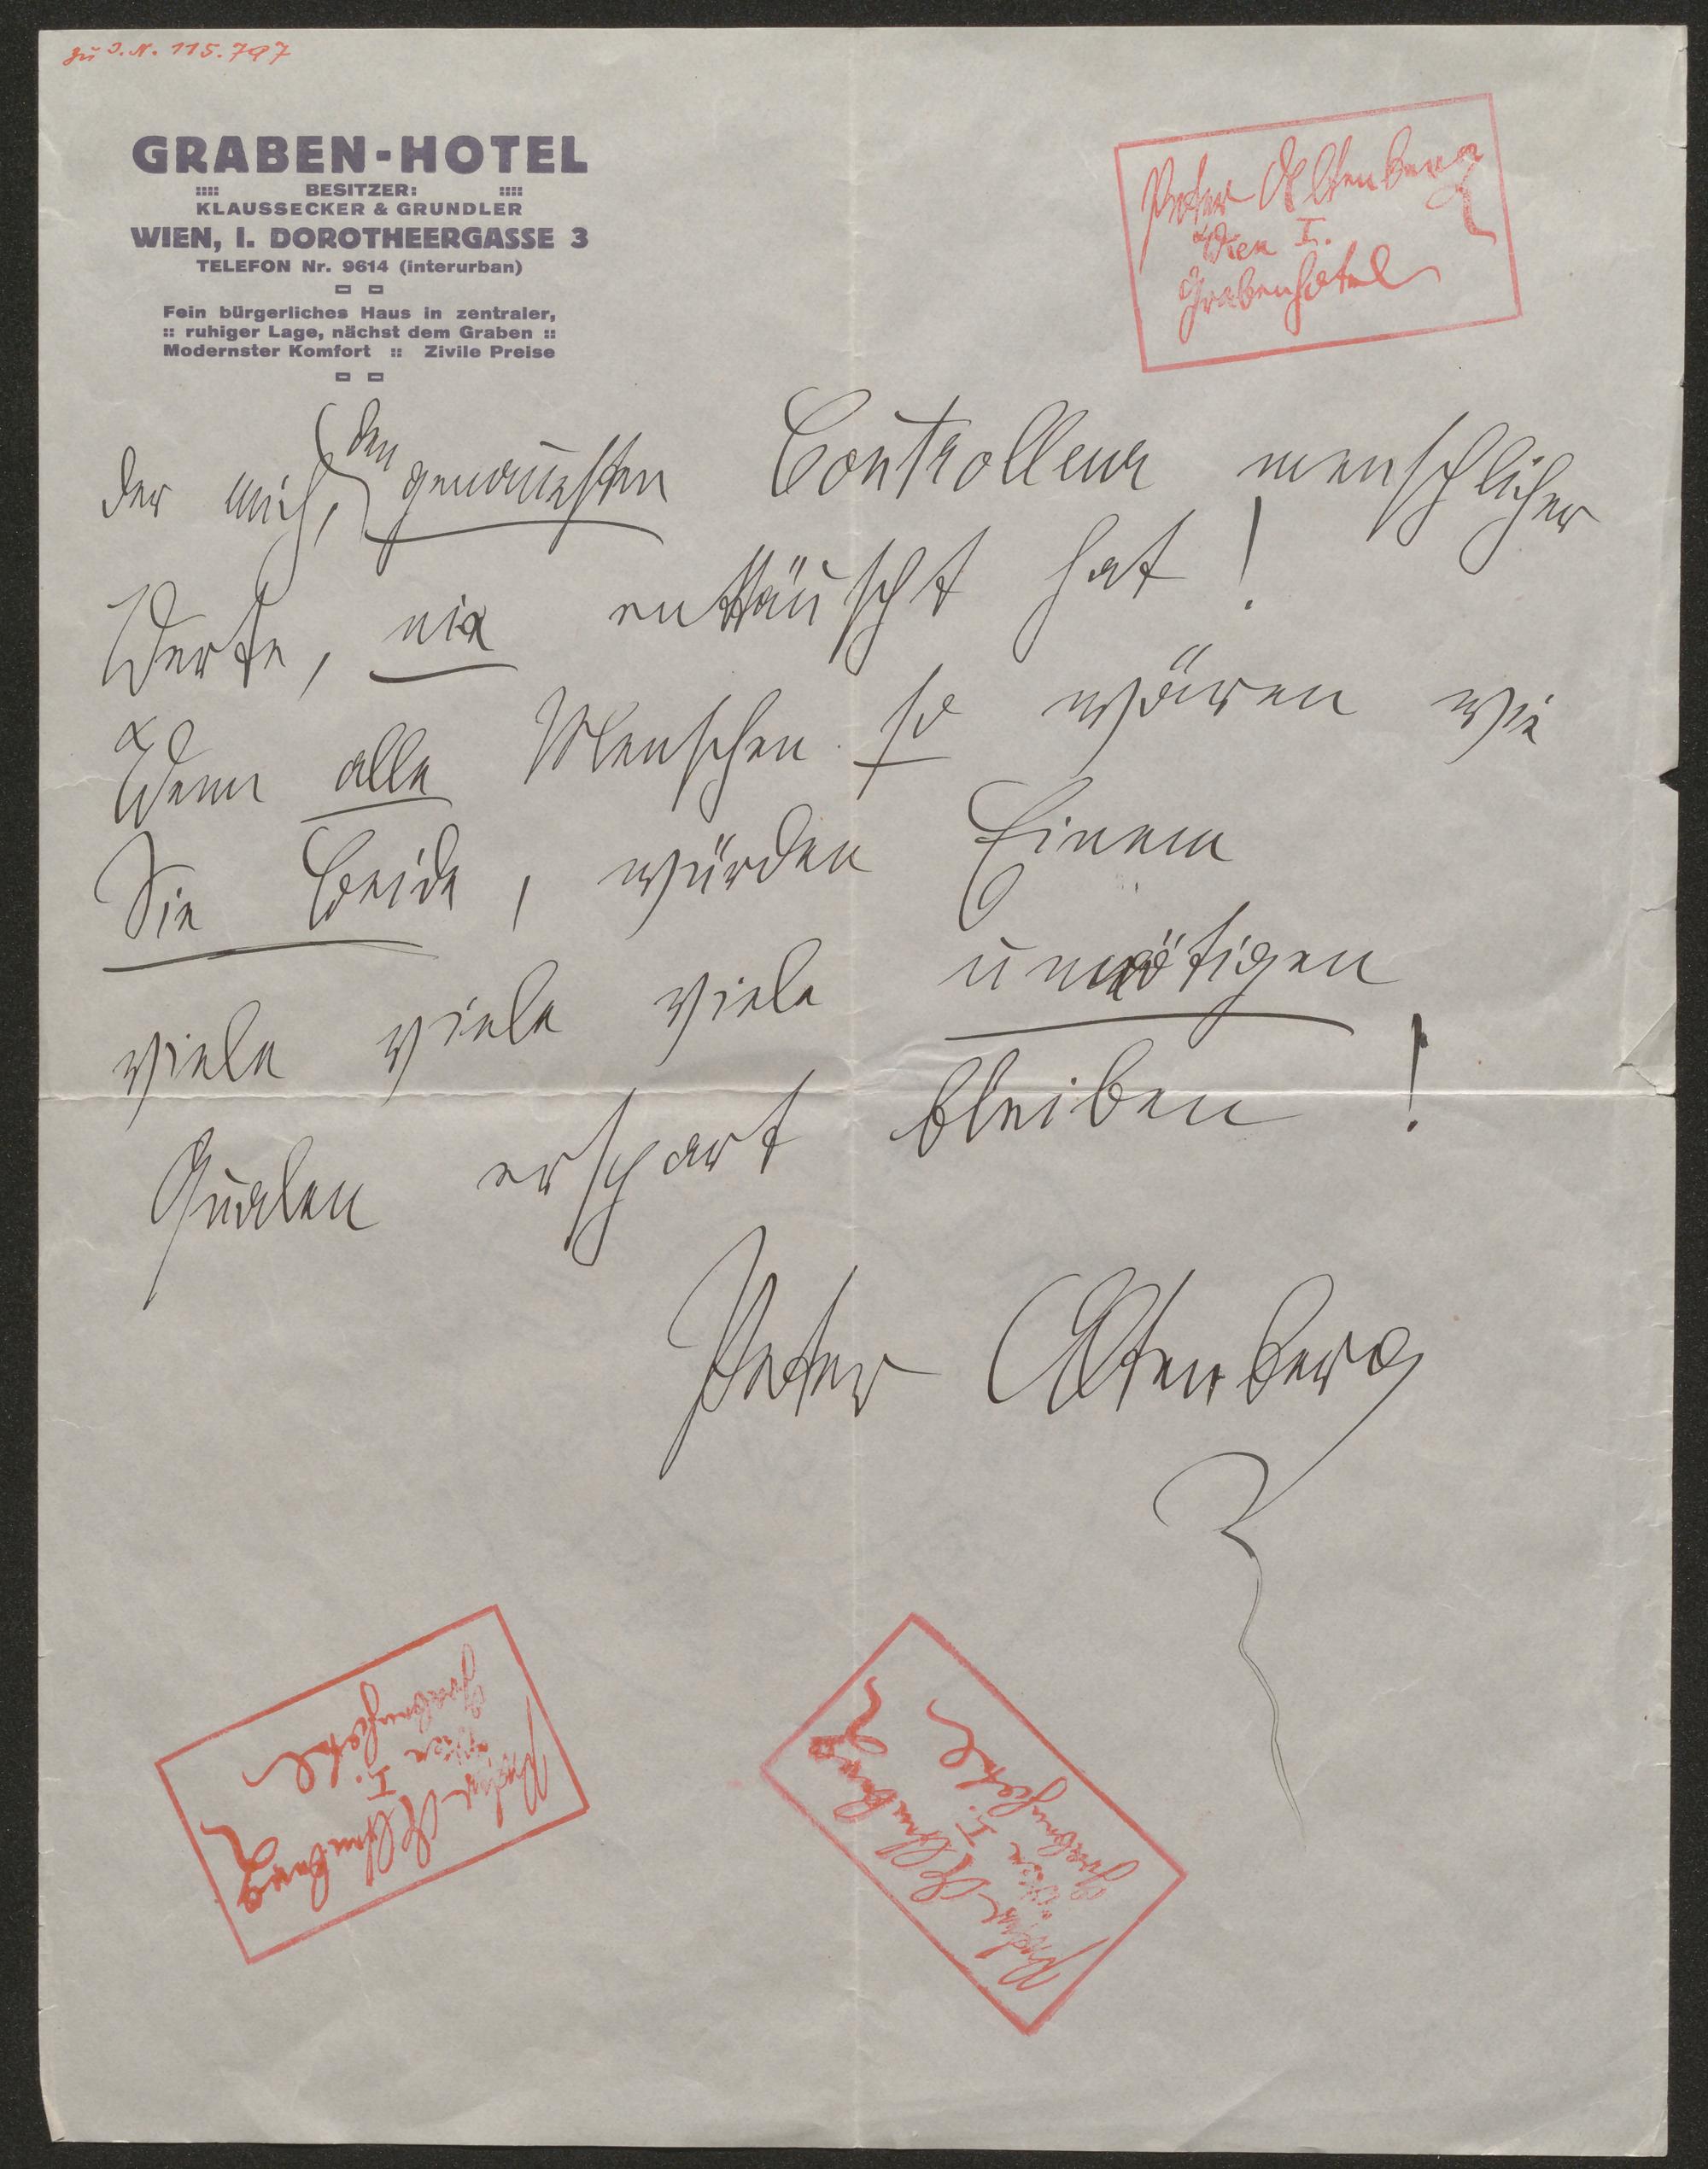 zu I.N. 115.797
GRABEN-HOTEL
:::: BESITZER: ::::
KLAUSSECKER & GRUNDLER
WIEN, I. DOROTHEERGASSE 3
TELEFON Nr. 9614 (interurban)
Fein bürgerliches Haus in zentraler,
:: ruhiger Lage, nächst dem Graben ::
Modernster Komfort :: Zivile Preise
Peter Altenberg
Wien I.
Grabenhotel
den
der mich, genauesten Controlleur menschlicher
Werte, nie enttäuscht hat!
Wenn alle Menschen so wären wie
Sie Beide, würden Einem
viele viele viele unnötigen
Qualen erspart bleiben!
Peter Altenberg
Peter Altenberg
Wien I.
Grabenhotel
Peter Altenberg
Wien I.
Grabenhotel